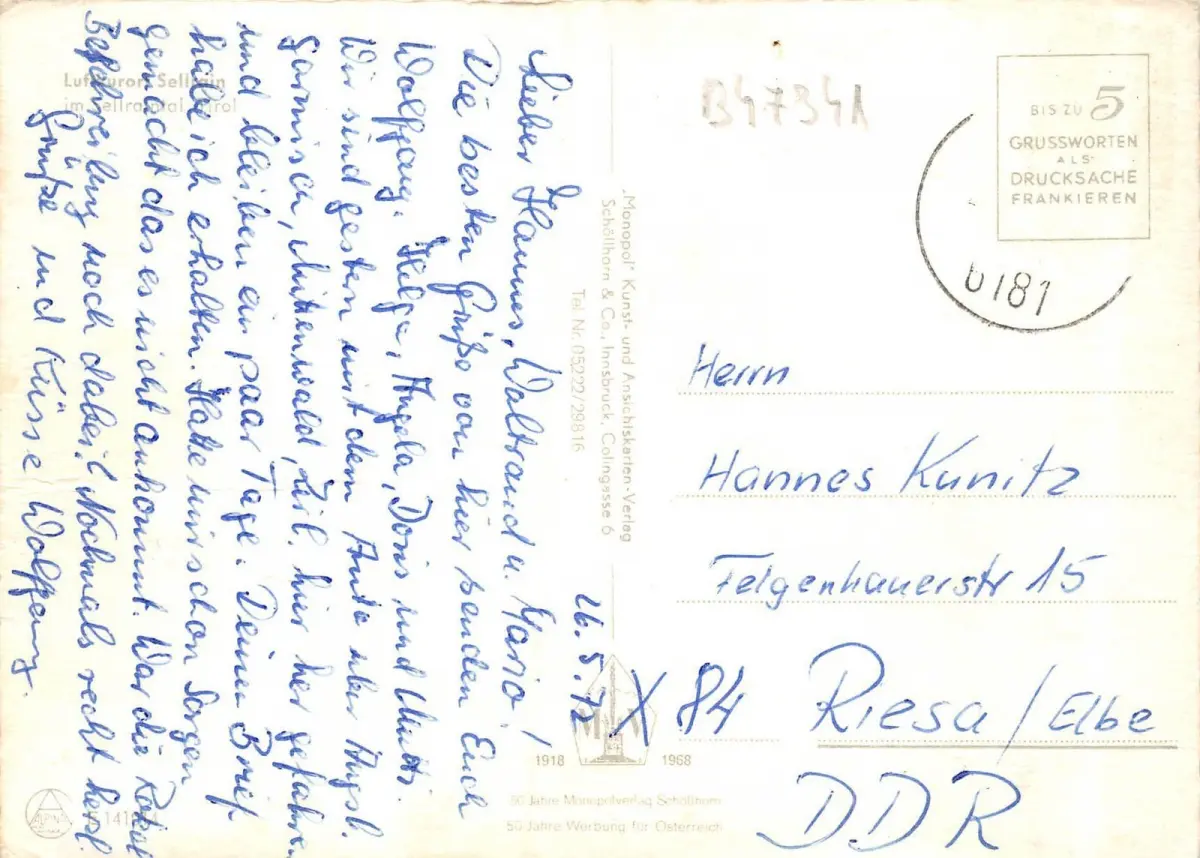 Luftkurort Sellrain
im Sellraintal, Tirol
26.5.72
Lieber Hannes, Waltraud u. Mario!
Die besten Grüße von hier senden Euch
Wolfgang, Helga, Angela, Doris und Mutti.
Wir sind gestern mit dem Auto über Augsb.
Garmisch, Mittenwald, Zirl. hier her gefahren
und bleiben ein paar Tage. Deinen Brief
habe ich erhalten. Hatte mir schon Sorgen
gemacht das es nicht ankommt. War die
Beschreibung noch dabei? Nochmals recht herzl.
Grüße und Küsse Wolfgang.
"Monopol" Kunst- und Ansichtskarten-Verlag
Schöllhorn & Co., Innsbruck, Colingasse 6
Tel. Nr. 05222/29816
1918 1968
50 Jahre Monopolverlag Schöllhorn
50 Jahre Werbung für Österreich
B47341
BIS ZU 5
GRUSSWORTEN
ALS
DRUCKSACHE
FRANKIEREN
6181
Herrn
Hannes Kunitz
Felgenhauerstr 15
X 84 Riesa/Elbe
DDR